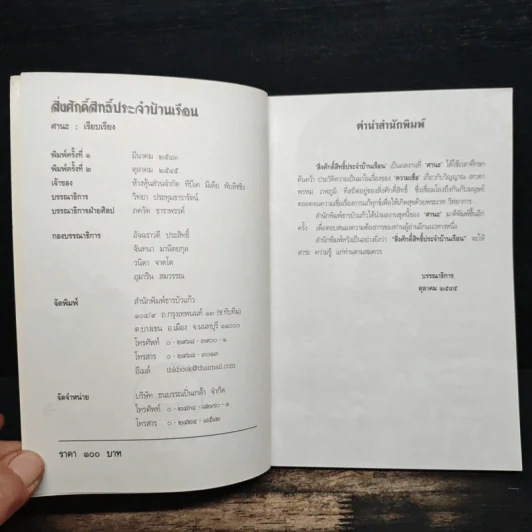 สิ่งศักดิ์สิทธิ์ประจำบ้านเรือน
ศานะ : เรียบเรียง
พิมพ์ครั้งที่ ๑ มีนาคม ๒๕๔๓
พิมพ์ครั้งที่ ๒ ตุลาคม ๒๕๔๕
เจ้าของ ห้างหุ้นส่วนจำกัด ทีบีเค มีเดีย พับลิชชิง
บรรณาธิการ วิทยา ประทุมธารารัตน์
บรรณาธิการฝ่ายศิลป ภควัต ธาราพรรค์
กองบรรณาธิการ อัจฉราวดี ประสิทธิ์
จันทนา มานิตยกุล
วนิดา จาดโต
อุมาริน สมวรรณ
จัดพิมพ์ สำนักพิมพ์ธารบัวแก้ว
ต.บางเขน อ.เมือง จ.นนทบุรี ๑๑๐๐๐
โทรศัพท์ ๐-๒๙๖๘-๓๙๐๐-๑
โทรสาร ๐-๒๙๖๘-๓๐๑๓
อีเมล์ tbkbook@thaimail.com
จัดจำหน่าย บริษัท ธนบรรณปิ่นเกล้า จำกัด
โทรศัพท์
โทรสาร
ราคา ๑๐๐ บาท
คำนำสำนักพิมพ์
"สิ่งศักดิ์สิทธิ์ประจำบ้านเรือน" เป็นผลงานที่ "ศานะ" ได้ใช้เวลาศึกษา
ค้นคว้า ประวัติความเป็นมาในเรื่องของ "ความเชื่อ" เกี่ยวกับวิญญาณ เทวดา
พรหม ภพภูมิ ที่สถิตอยู่ของสิ่งศักดิ์สิทธิ์ ซึ่งเชื่อมโยงถึงกันกับมนุษย์
ตลอดจนความเชื่อเรื่องการแก้ทุกข์เพื่อให้เกิดสุขด้วยพระเวท วิทยาการ
สำนักพิมพ์ธารบัวแก้วได้นำผลงานชุดนี้ของ "ศานะ" มาตีพิมพ์ขึ้นอีก
ครั้ง เพื่อตอบสนองความต้องการของท่านผู้อ่านอีกแนวทางหนึ่ง
สำนักพิมพ์หวังเป็นอย่างยิ่งว่า "สิ่งศักดิ์สิทธิ์ประจำบ้านเรือน" จะให้
สาระ ความรู้ แก่ท่านตามสมควร
บรรณาธิการ
ตุลาคม ๒๕๔๕